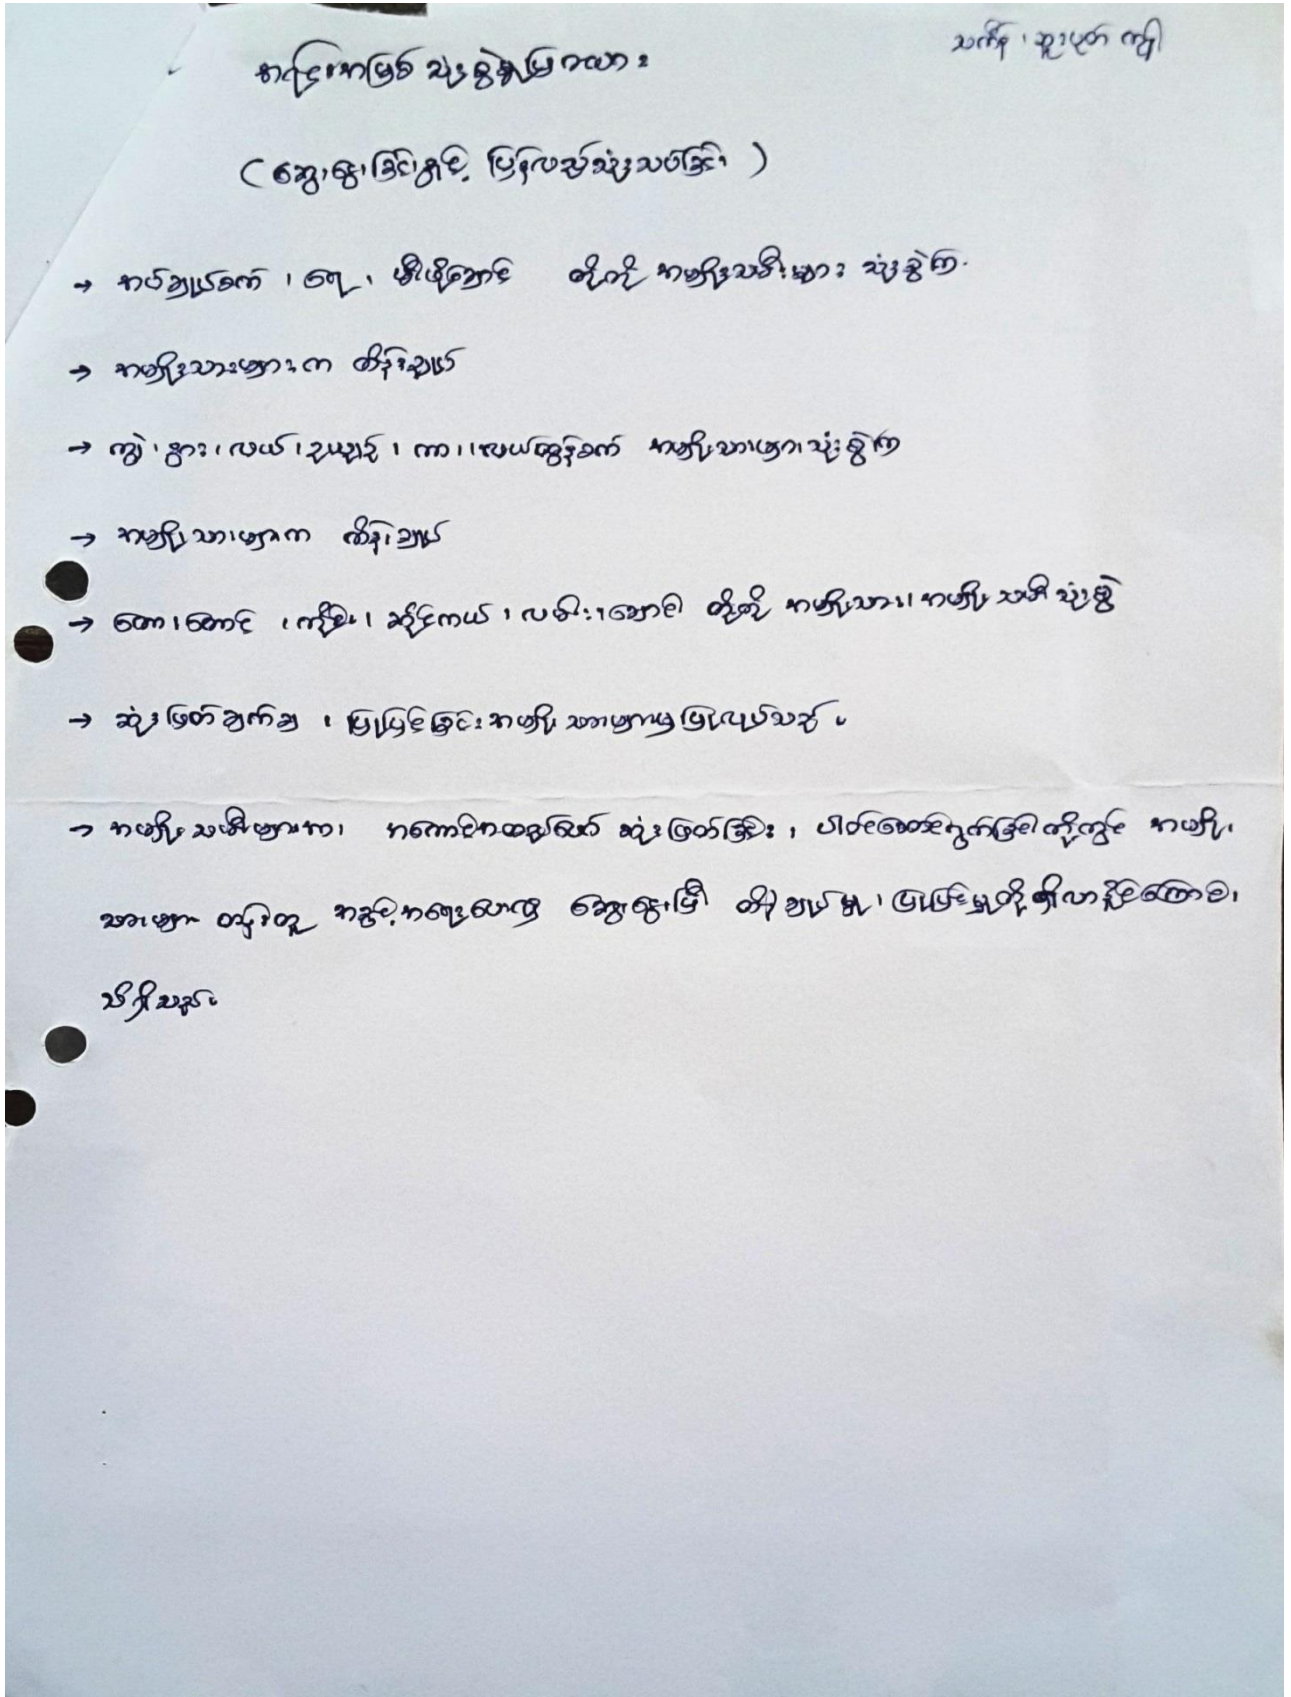 သက်န် ၊ ဆူးပုတ် ကျို
အရင်းအမြစ် သုံးစွဲမှုပြဇယား
( ဆွေးနွေးခြင်းနှင့် ပြန်လည်သုံးသပ်ခြင်း )
→ အပ်ချုပ်စက် ၊ ရေ ၊ မီးဖိုချောင် တို့ကို အမျိုးသမီးများ သုံးစွဲကြ
→ အမျိုးသားများက ထိန်းချုပ်
→ ကျွဲ ၊ နွား ၊ လယ် ၊ ဥယျာဉ် ၊ ကား ၊ လယ်ထွန်စက် အမျိုးသားများသုံးစွဲကြ
→ အမျိုးသားများက ထိန်းချုပ်
→ တော ၊ တောင် ၊ ကိုင်း ၊ ဆိုင်ကယ် ၊ လမ်း ၊ ချောင်း တို့ကို အမျိုးသား ၊ အမျိုးသမီး သုံးစွဲ
→ ဆုံးဖြတ်ချက်ချ ၊ ပြုပြင်ခြင်း အမျိုးသားများမှ ပြုလုပ်သည် ။
→ အမျိုးသမီးများကား အကောင်အထည်ဖော် ဆုံးဖြတ်ခြင်း ၊ ပါဝင်ဆောင်ရွက်ခြင်းတို့တွင် အမျိုး
သားများ တန်းတူ အခွင့်အရေးပေးလျှင် ဆွေးနွေးပြီး ထိန်းချုပ်မှု ၊ ပြုပြင်မှုတို့ ရှိလာနိုင်ကြောင်း
သိရှိသည် ။